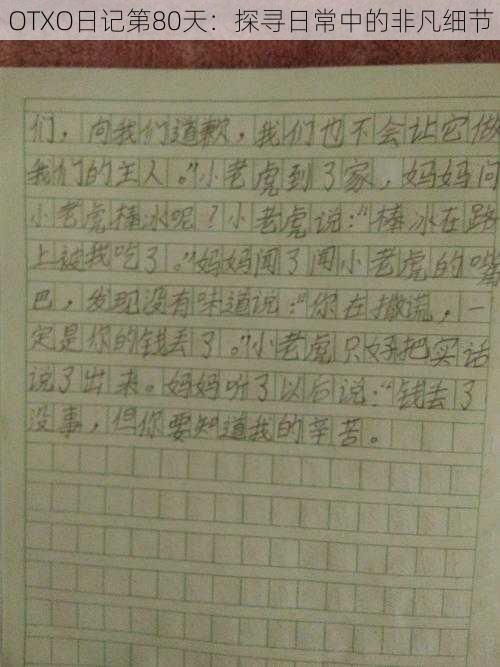 OTXO日记第80天：探寻日常中的非凡细节
们，向我们道歉，我们也不会让它做
我们的主人。"小老虎到了家，妈妈问
小老虎棒冰呢？小老虎说："棒冰在路
上被我吃了。"妈妈闻了闻小老虎的嘴
巴，发现没有味道说："你在撒谎，一
定是你的钱丢了。"小老虎只好把实话
说了出来。妈妈听了以后说："钱丢了
没事，但你要知道我的辛苦。